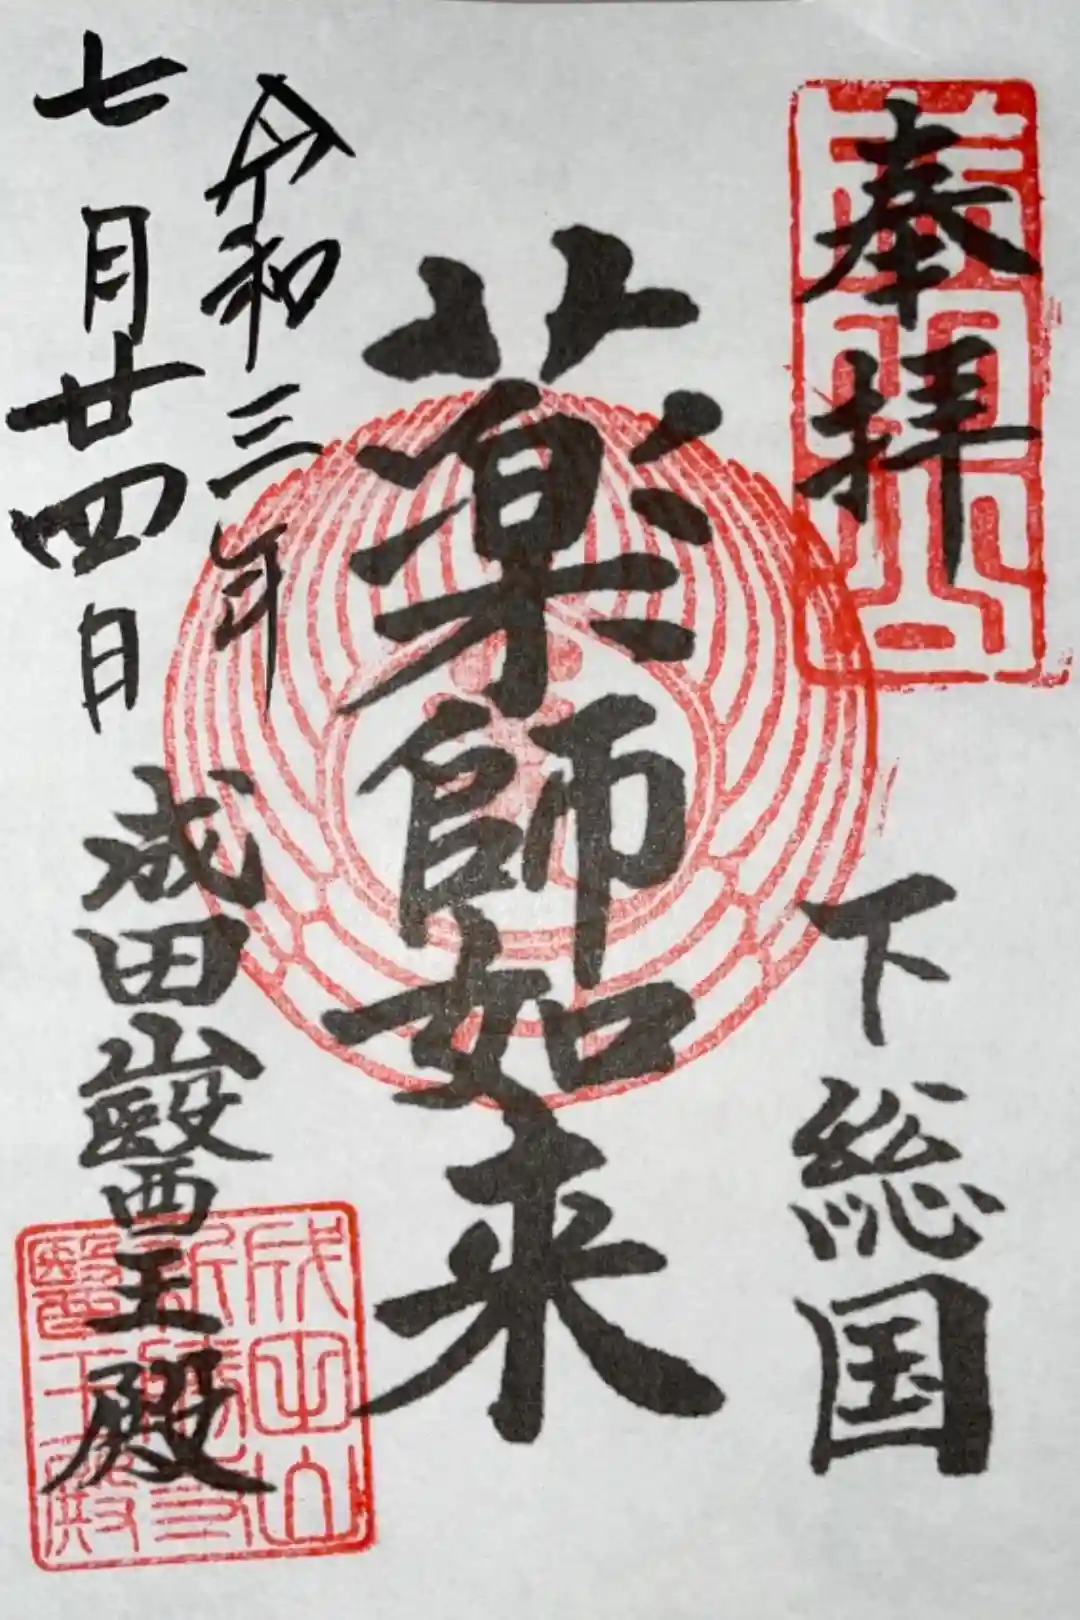 奉拝
下総国
薬師如来
令和三年
七月廿四日
成田山醫王殿
成田山
新勝寺
醫王殿